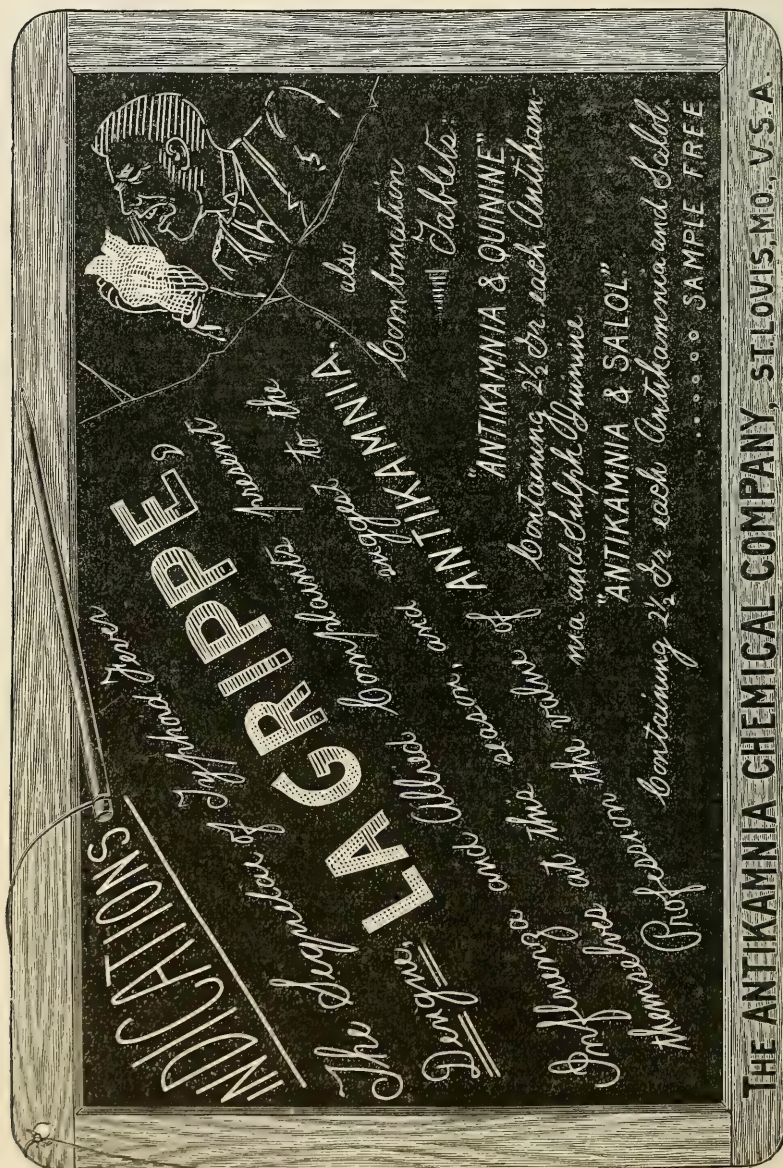 INDICATIONS
The Sequelae of Typhoid Fever
Dengue, LA GRIPPE,
Influenza and Allied Complaints present
themselves at this season, and suggest to the
Profession the value of ANTIKAMNIA.
also
Combination
Tablets
"ANTIKAMNIA & QUININE"
Containing 2½ Gr each Antikam-
nia and Sulph Quinine.
"ANTIKAMNIA & SALOL"
Containing 2½ Gr each Antikamnia and Salol.
SAMPLE FREE
THE ANTIKAMNIA CHEMICAL COMPANY, ST.LOVIS, MO., V.S.A.